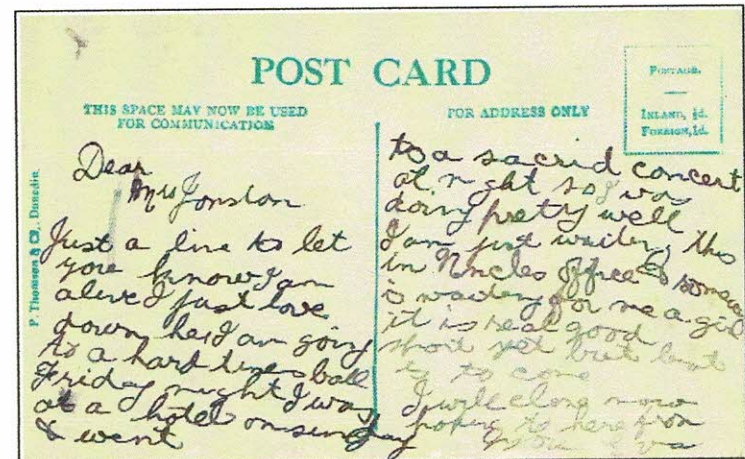 POST CARD
THIS SPACE MAY NOW BE USED
FOR COMMUNICATION
FOR ADDRESS ONLY
POSTAGE.
INLAND, ½d.
FOREIGN, 1d.
P. Thomson & Co., Dunedin.
Dear
Mrs Jonston
Just a line to let
you know I am
alive I just love
down he I am going
to a hard times ball
Friday night I was
at a hotel on sunday
& went
to a sacrid concert
at night so I was
doing pretty well
I am just waiting this
in Uncles office
is waiting for me a girl
it is real good
yet but
to come
I will close now
hoping to here from